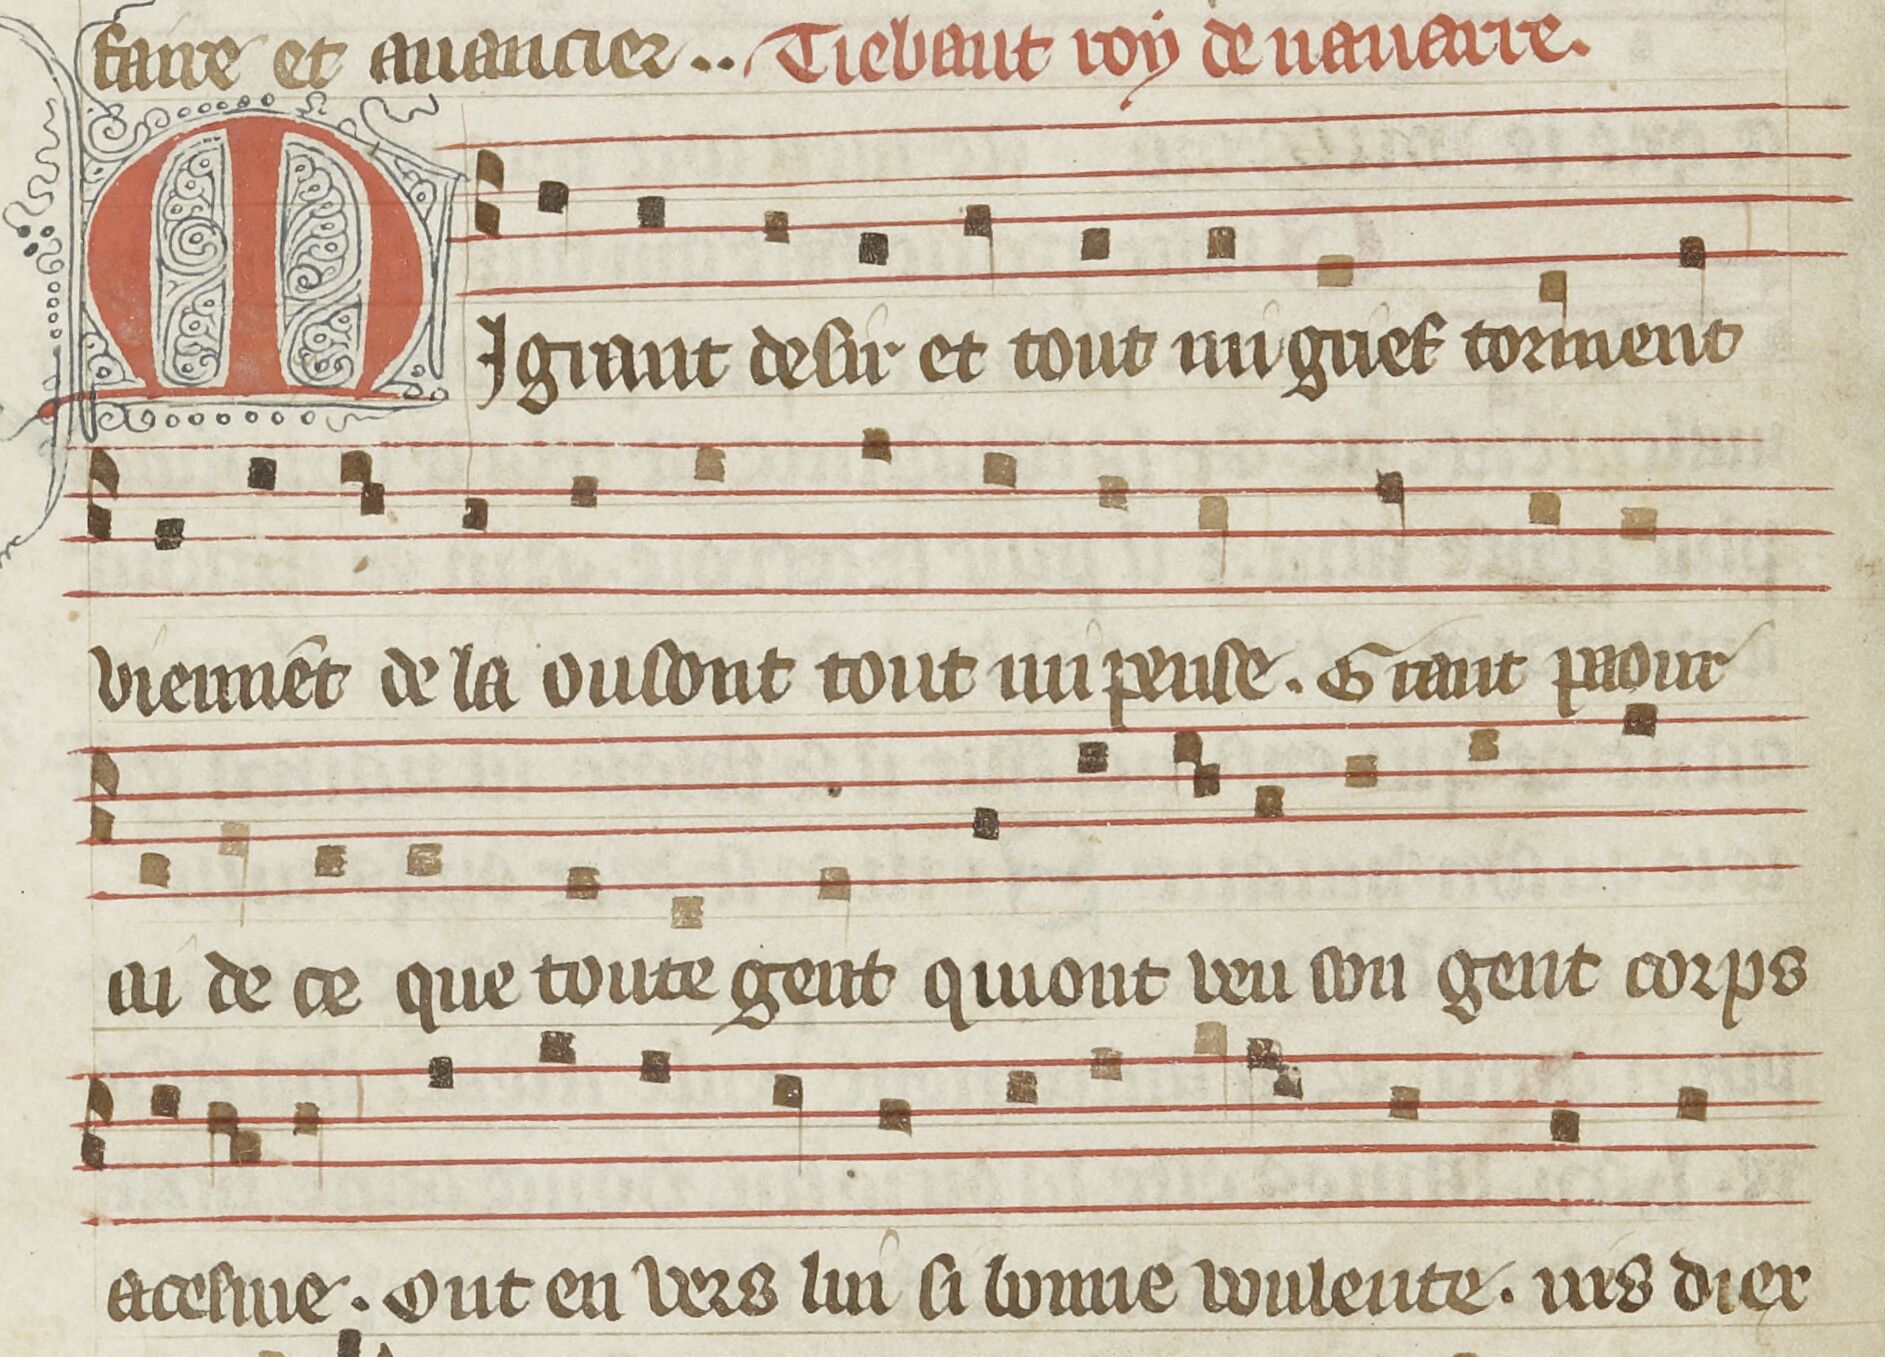 faire et auancier.. Tiebaut roy de nauarre.
MI grant desir et tout mi grief torment
viennēt de la ou sont tout mi pense. Grant paour
ai de ce que toute gent qui ont veu son gent corps
acesme. Ont en vers lui si bonne voulente. nis diex